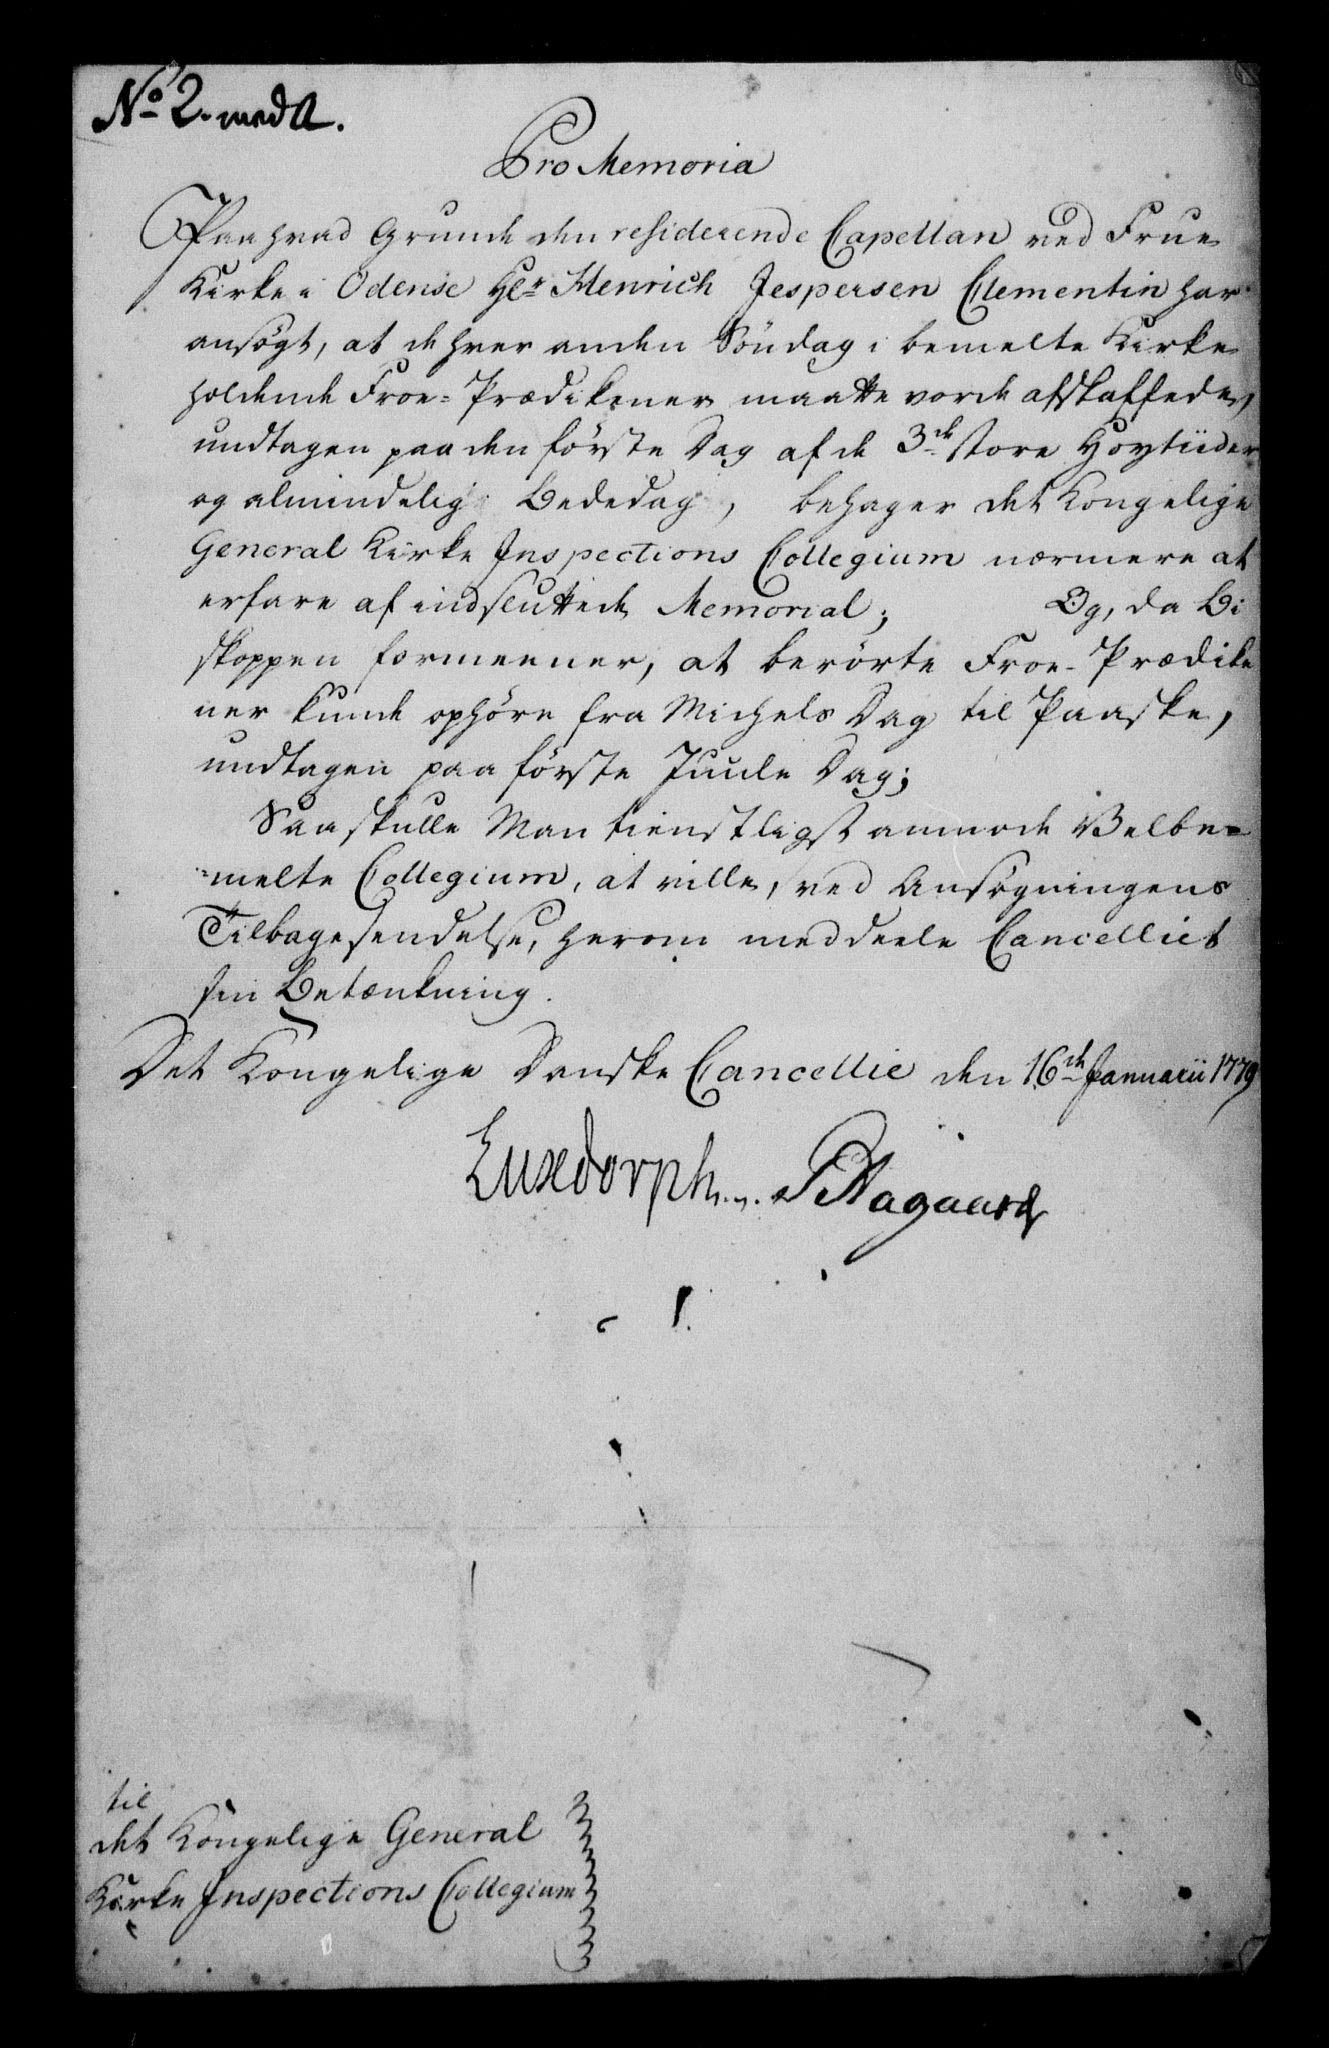 No 2. med A.
Pro Memoria
Paa hvad Grunde den residerende Capellan ved Frue
Kirke i Odense Hr Henrich Jespersen Clementin har
ansøgt, at de hver anden Søndag i bemelte Kirke
holdende Froe-Prædikener maatte vorde afskaffede,
undtagen paa den første Dag af de 3de store Høytiider
og almindelig Bededag, behager det Kongelige
General Kirke Inspections Collegium nærmere at
erfare af indsluttede Memorial; Og, da Bi
skoppen formeener, at berørte Froe-Prædike
ner kunde ophøre fra Michels Dag til Paaske,
undtagen paa første Juule Dag;
Saa skulle Man tienstligst anmode Velbe=
=melte Collegium, at ville, ved Ansøgningens
Tilbagesendelse, herom meddeele Cancelliet
sin Betænkning.
Det Kongelige Danske Cancellie den 16de Januarii 1779
Luxdorph. Aagaard
til
det Kongelige General
Kirke Inspections Collegium